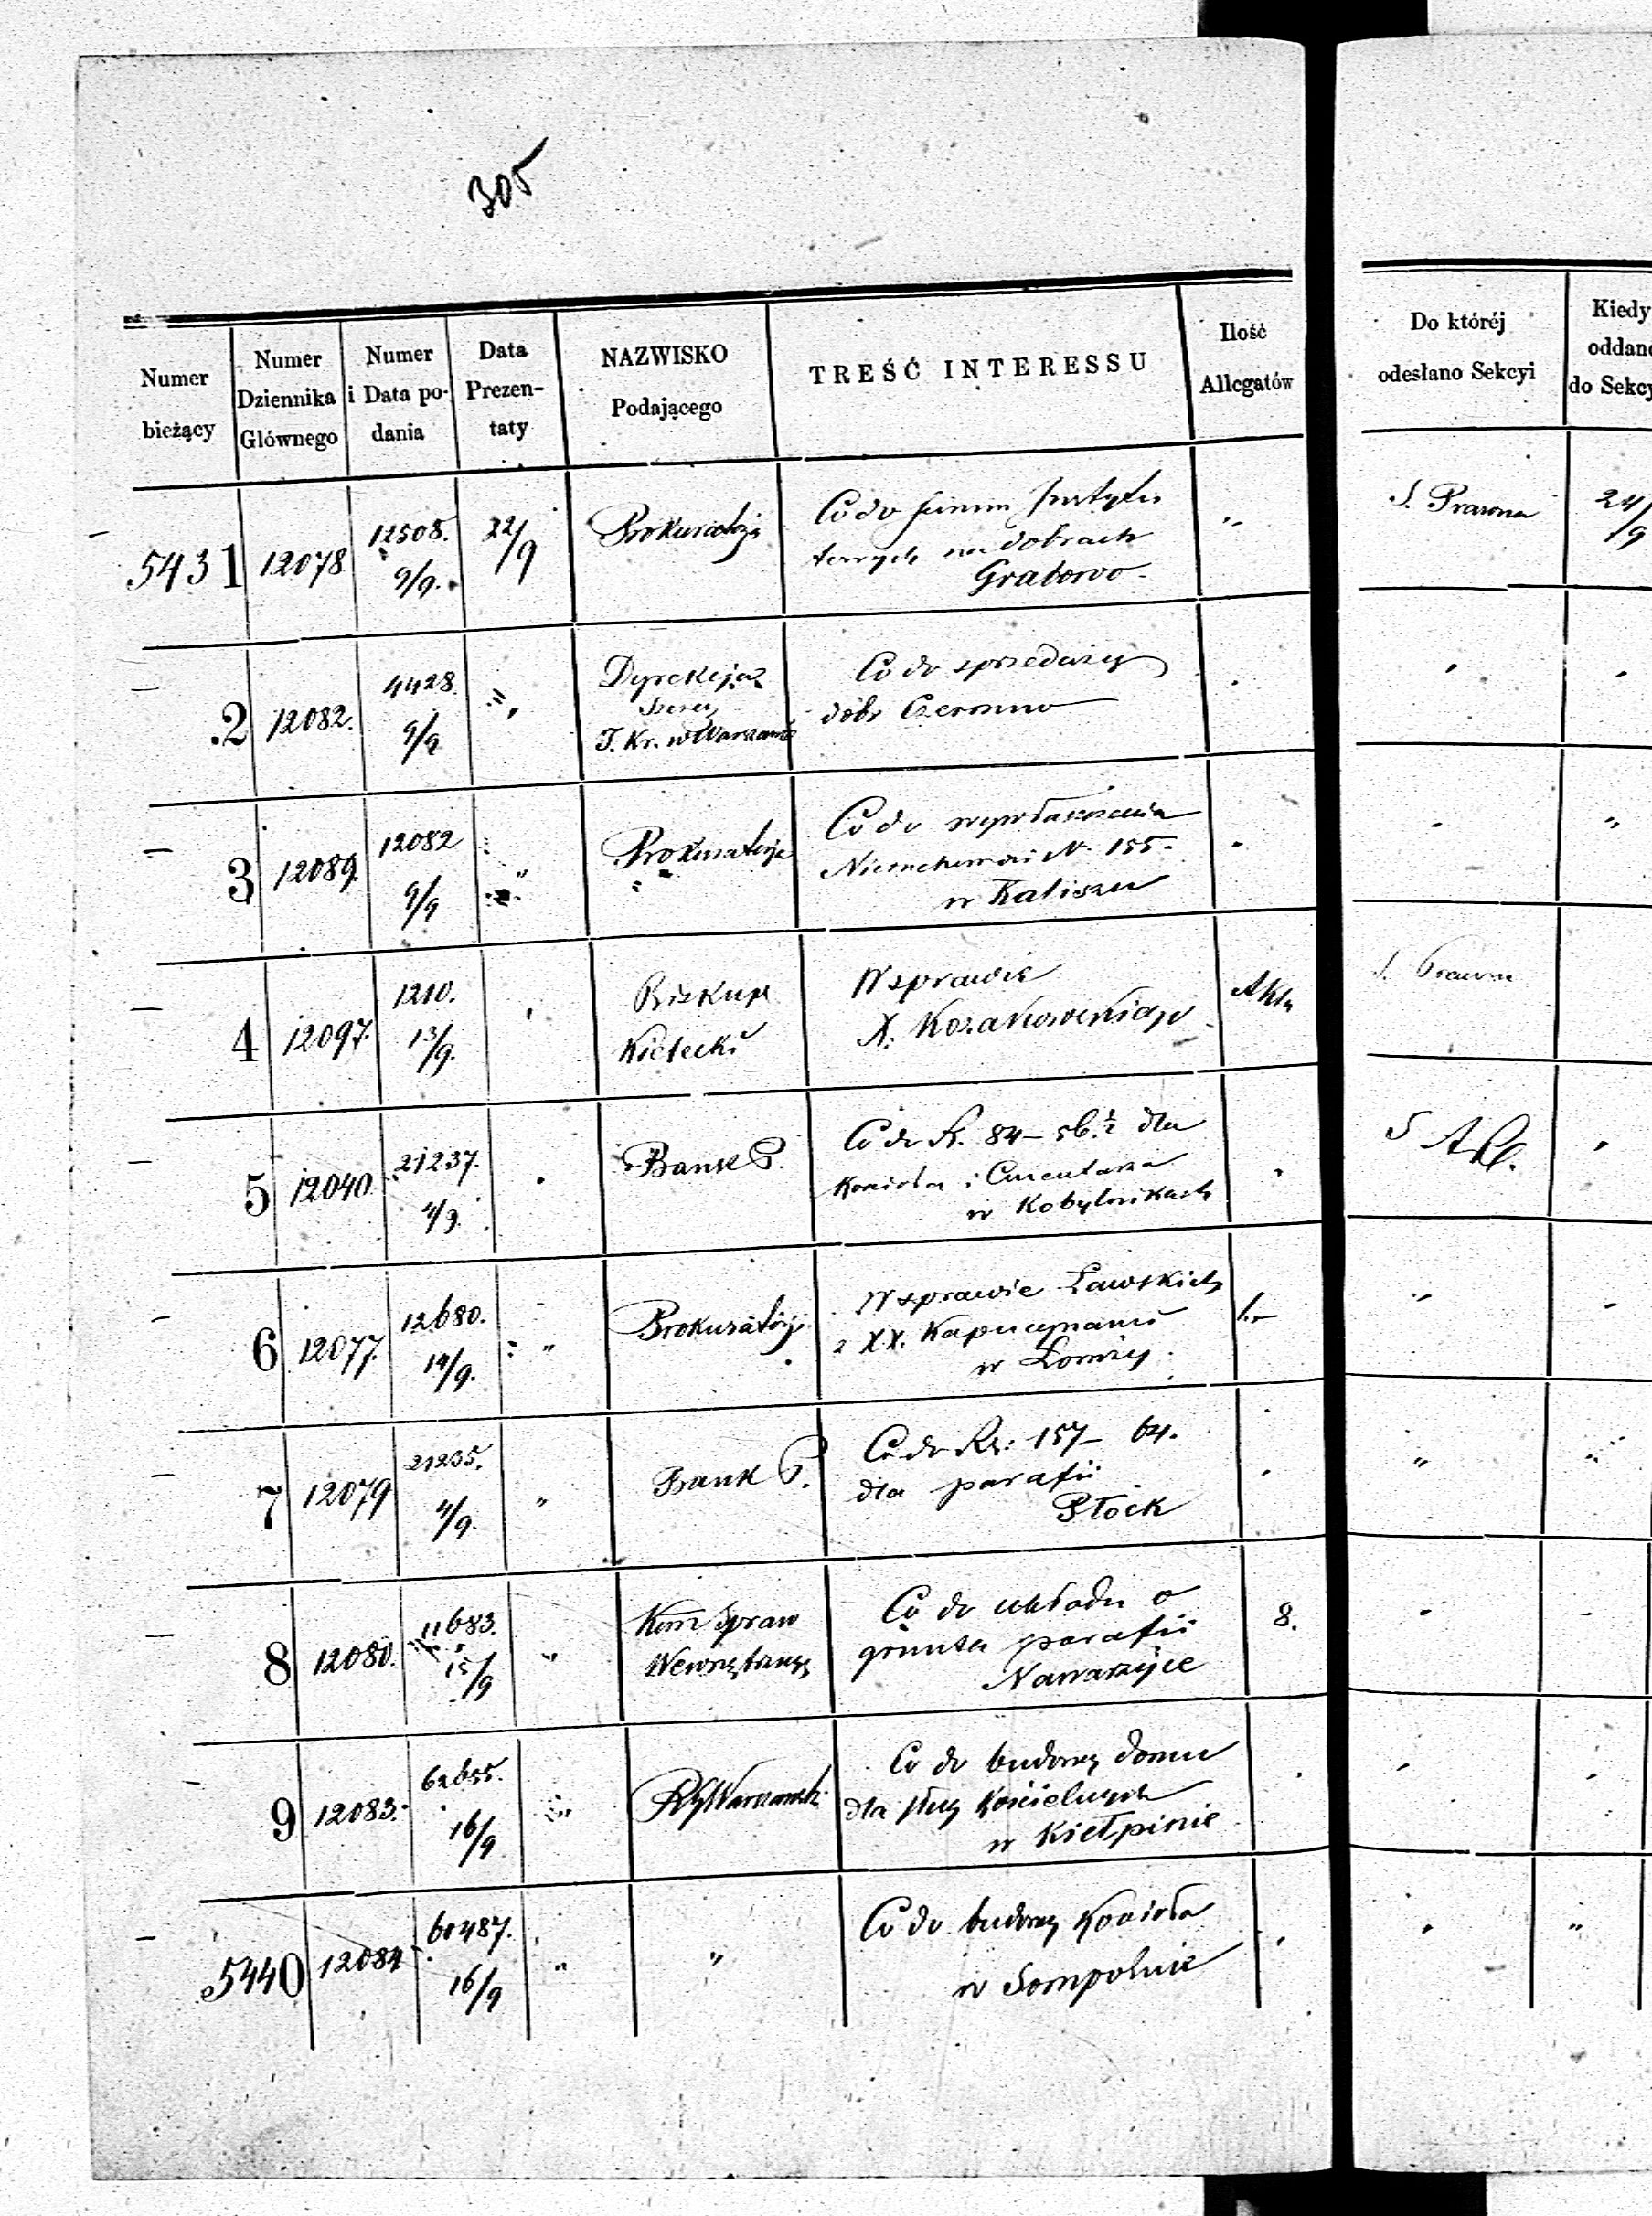 305
Numer bieżący | Numer Dziennika Głównego | Numer i Data podania | Data Prezentaty | NAZWISKO Podającego | TREŚĆ INTERESSU | Ilość Allegatów | Do któréj odesłano Sekcyi | Kiedy oddano do Sekcy
5431 | 12078 | 12508. 9/9. | 22/9 | Prokuratorja | Co do summ Instytu
towych na dobrach
Grabowo. | " | S. Prawna | 24/9
2 | 12082. | 4428. 9/9 | " | Dyrekcja
Szczeg
T. Kr. w Warszawie | Co do sprzedaży
dóbr Czeromno
3 | 12089. | 12082 9/9 | " | Prokuratorja | Co do wywłaszczenia
Nieruchomości N. 155.
w Kaliszu | "
4 | 12097. | 1210. 13/9. | Biskup
Kielecki | W sprawie
X. Kozakowskiego | Akta | S. Prawna
5 | 12040 | 21237. 4/9. | Bank P. | Co do R. 84 – 56.½ dla
Kościoła i Cmentarza
w Kobylnikach | S
6 | 12077. | 12680. 14/9. | " | Prokuratorja | W sprawie Ławskich
z XX. Kapucynami
w Łomży. | 1.– | "
7 | 12079 | 21235. 4/9. | " | Bank P. | Co do Rs: 157 – 64.
dla parafii
Płock | " | "
8 | 12080. | 11683. 15/9 | " | Kom Spraw
Wewnętrznych | Co do układu o
grunta parafii
Nawarzyce | 8. | "
9 | 12083. | 62655. 16/9 | " | RG Warszawski | Co do budowy domu
dla sług Kościelnych
w Kiełpinie
5440 | 12084 | 60487. 16/9 | " | " | Co do budowy Kościoła
w Sompolnie | "